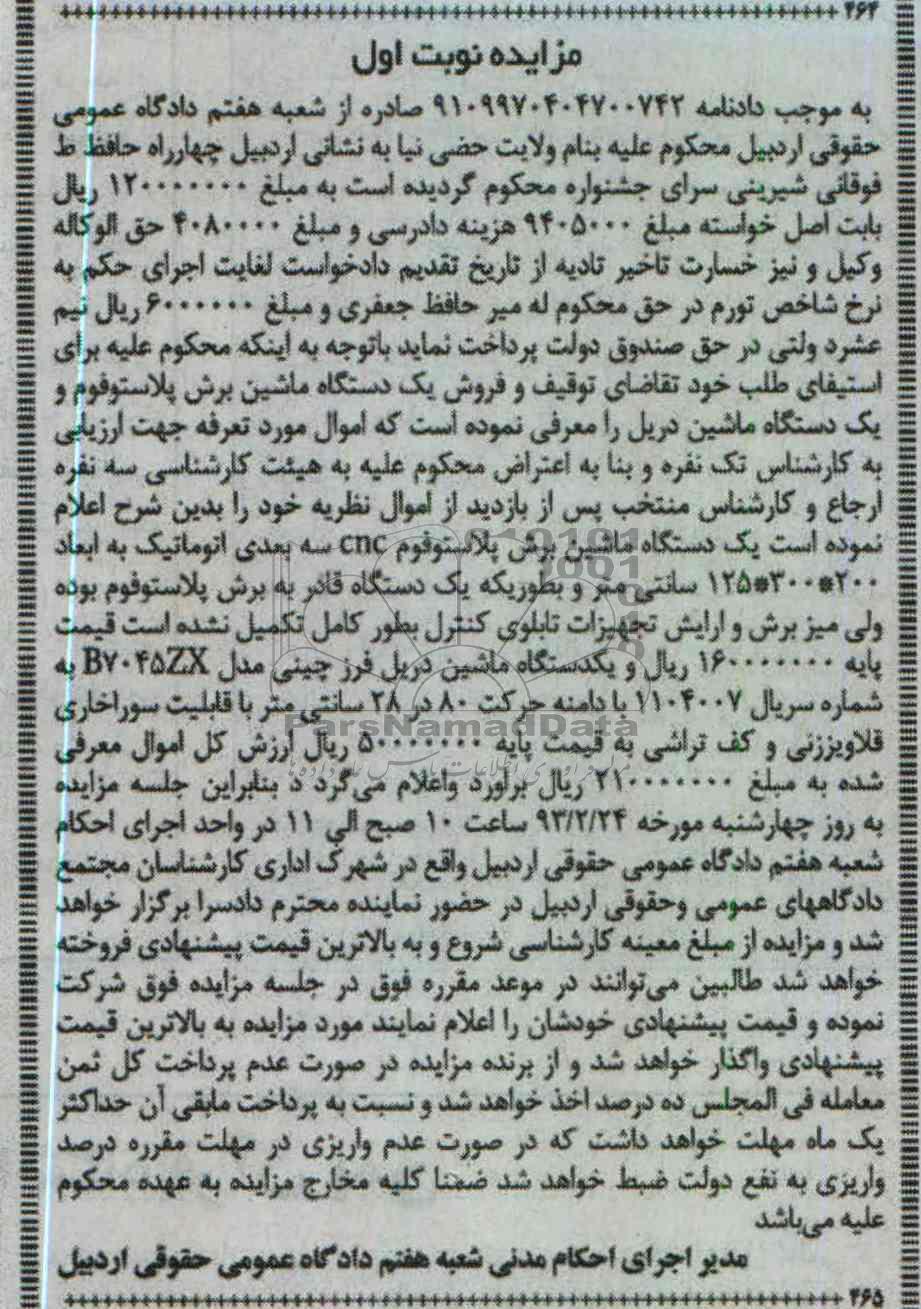 ۴۶۴
مزایده نوبت اول
به موجب دادنامه ۹۱۰۹۹۷۰۴۰۴۷۰۰۷۴۲ صادره از شعبه هفتم دادگاه عمومی
حقوقی اردبیل محکوم علیه بنام ولایت حضی نیا به نشانی اردبیل چهارراه حافظ ط
فوقانی شیرینی سرای جشنواره محکوم گردیده است به مبلغ ۱۲۰۰۰۰۰۰۰ ریال
بابت اصل خواسته مبلغ ۹۴۰۵۰۰۰ هزینه دادرسی و مبلغ ۴۰۸۰۰۰۰ حق الوکاله
وکیل و نیز خسارت تاخیر تادیه از تاریخ تقدیم دادخواست لغایت اجرای حکم به
نرخ شاخص تورم در حق محکوم له میر حافظ جعفری و مبلغ ۶۰۰۰۰۰۰ ریال نیم
عشرد ولتی در حق صندوق دولت پرداخت نماید باتوجه به اینکه محکوم علیه برای
استیفای طلب خود تقاضای توقیف و فروش یک دستگاه ماشین برش پلاستوفوم و
یک دستگاه ماشین دریل را معرفی نموده است که اموال مورد تعرفه جهت ارزیابی
به کارشناس تک نفره و بنا به اعتراض محکوم علیه به هیئت کارشناسی سه نفره
ارجاع و کارشناس منتخب پس از بازدید از اموال نظریه خود را بدین شرح اعلام
نموده است یک دستگاه ماشین برش پلاستوفوم cnc سه بعدی اتوماتیک به ابعاد
۲۰۰*۳۰۰*۱۲۵ سانتی متر و بطوریکه یک دستگاه قادر به برش پلاستوفوم بوده
ولی میز برش و ارایش تجهیزات تابلوی کنترل بطور کامل تکمیل نشده است قیمت
پایه ۱۶۰۰۰۰۰۰۰ ریال و یکدستگاه ماشین دریل فرز چینی مدل B۷۰۴۵ZX به
شماره سریال ۱۱۰۴۰۰۷ با دامنه حرکت ۸۰ در ۲۸ سانتی متر با قابلیت سوراخاری
قلاویززنی و کف تراشی به قیمت پایه ۵۰۰۰۰۰۰۰ ریال ارزش کل اموال معرفی
شده به مبلغ ۲۱۰۰۰۰۰۰۰ ریال براورد واعلام می‌گرد د بنابراین جلسه مزایده
به روز چهارشنبه مورخه ۹۳/۲/۲۴ ساعت ۱۰ صبح الی ۱۱ در واحد اجرای احکام
شعبه هفتم دادگاه عمومی حقوقی اردبیل واقع در شهرک اداری کارشناسان مجتمع
دادگاههای عمومی وحقوقی اردبیل در حضور نماینده محترم دادسرا برگزار خواهد
شد و مزایده از مبلغ معینه کارشناسی شروع و به بالاترین قیمت پیشنهادی فروخته
خواهد شد طالبین می‌توانند در موعد مقرره فوق در جلسه مزایده فوق شرکت
نموده و قیمت پیشنهادی خودشان را اعلام نمایند مورد مزایده به بالاترین قیمت
پیشنهادی واگذار خواهد شد و از برنده مزایده در صورت عدم پرداخت کل ثمن
معامله فی المجلس ده درصد اخذ خواهد شد و نسبت به پرداخت مابقی آن حداکثر
یک ماه مهلت خواهد داشت که در صورت عدم واریزی در مهلت مقرره درصد
واریزی به نفع دولت ضبط خواهد شد ضمنا کلیه مخارج مزایده به عهده محکوم
علیه می‌باشد
مدیر اجرای احکام مدنی شعبه هفتم دادگاه عمومی حقوقی اردبیل
۴۶۵
ParsNamadData